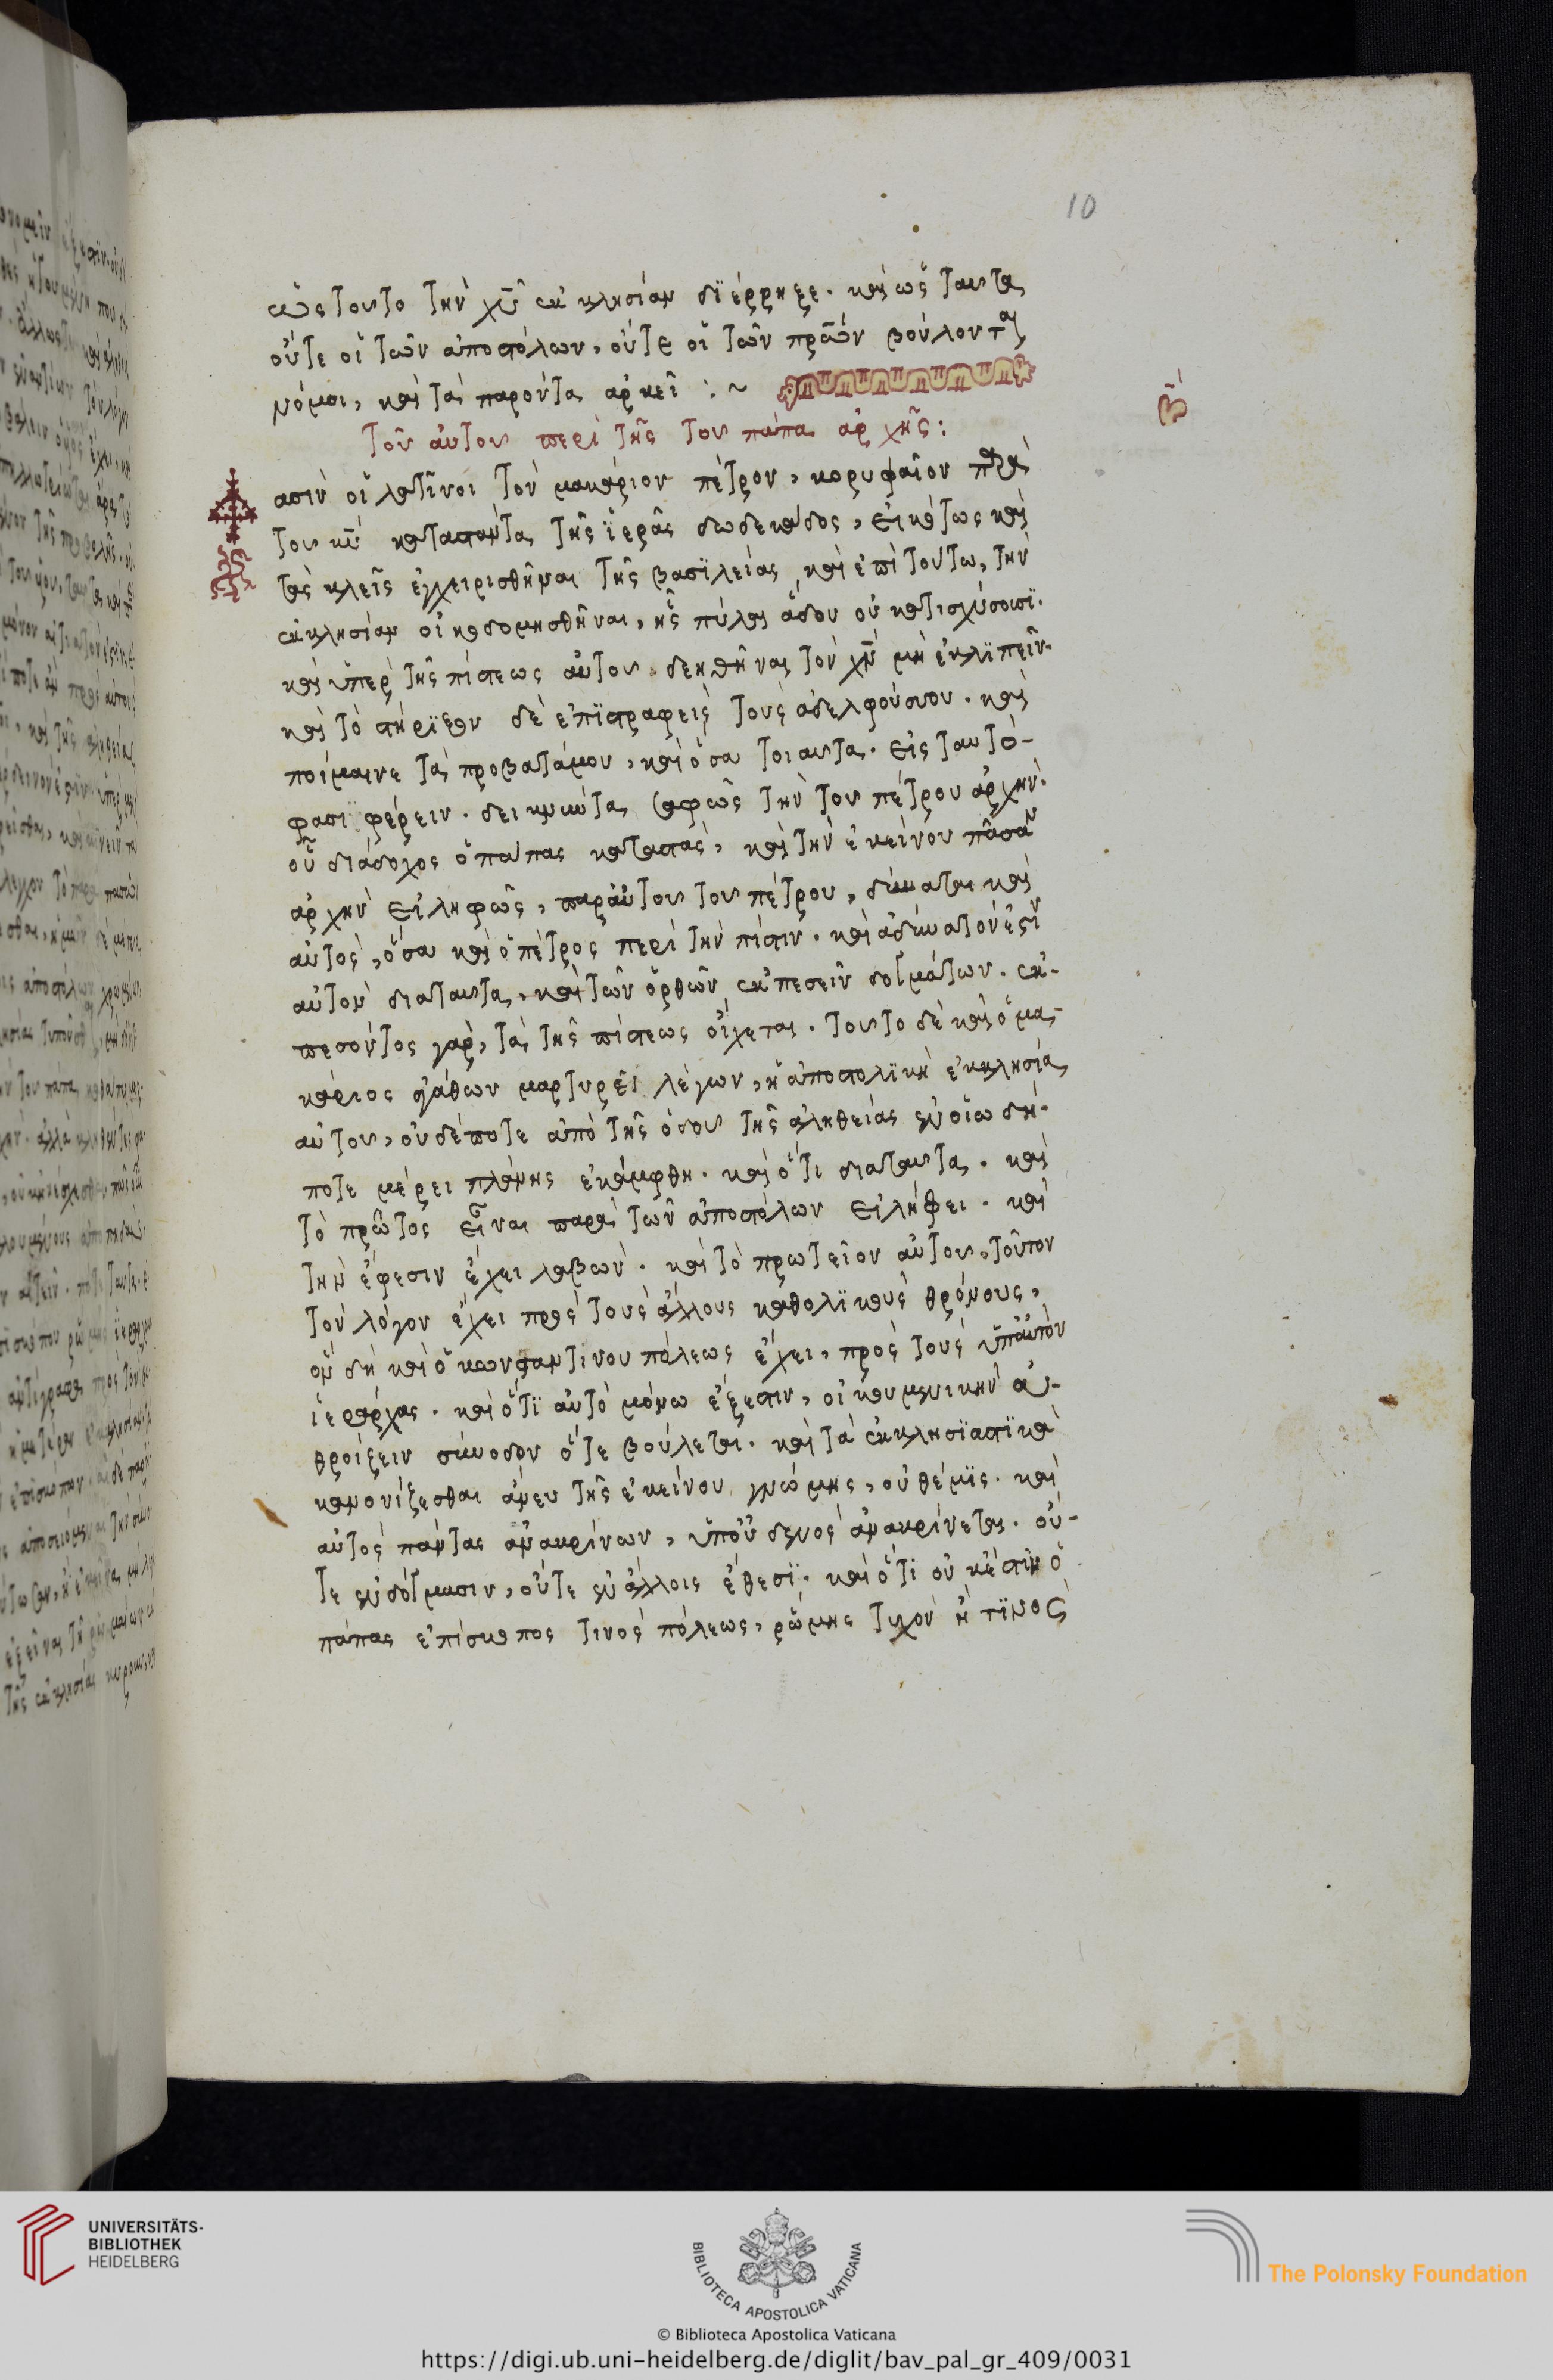 10
πῶς τοῦτο τὴν χυ ἐκκλησίαν διέρρηξε. καὶ ὡς ταῦτα
οὔτε οἱ τῶν ἀποστόλων, οὔτε οἱ τῶν πρων βούλονται
νόμοι, καὶ τὰ παρόντα ἀρκεῖ :~
Τοῦ αὐτοῦ περὶ τῆς τοῦ πάπα ἀρχῆς:
β
Φασὶν οἱ λατῖνοι τὸν μακάριον πέτρον, κορυφαῖον παρὰ
τοῦ κυ καταστάντα τῆς ἱερᾶς δωδεκάδος, εἰκότως καὶ
τὰς κλεῖς ἐγχειρισθῆναι τῆς βασιλείας, καὶ ἐπὶ τούτω, τὴν
ἐκκλησίαν οἰκοδομηθῆναι, ἧς πύλαι ἅδου οὐ κατισχύσουσι.
καὶ ὑπὲρ τῆς πίστεως αὐτοῦ δεηθῆναι τὸν χν μὴ ἐκλιπεῖν.
καὶ τὸ στήριξον δὲ ἐπιστραφεὶς τοὺς ἀδελφούς σου. καὶ
ποίμαινε τὰ πρόβατά μου, καὶ ὅσα τοιαῦτα. εἰς ταυτό-
φασι φέρειν. δεικνύντα σαφῶς τὴν τοῦ πέτρου ἀρχήν.
οὗ διάδοχος ὁ πάπας καταστὰς, καὶ τὴν ἐκείνου πᾶσαν
ἀρχὴν εἰληφὼς, παρ' αὐτοῦ τοῦ πέτρου, δύναται καὶ
αὐτὸς, ὅσα καὶ ὁ πέτρος περὶ τὴν πίστιν. καὶ ἀδύνατόν ἐστιν
αὐτὸν διαταῦτα, καὶ τῶν ὀρθῶν ἐκπεσεῖν δογμάτων. ἐκ-
πεσόντος γὰρ, τὰ τῆς πίστεως οἴχεται. τοῦτο δὲ καὶ ὁ μα-
κάριος ἀγάθων μαρτυρεῖ λέγων, ἡ ἀποστολικὴ ἐκκλησία
αὐτοῦ, οὐδέποτε ἀπὸ τῆς ὁδοῦ τῆς ἀληθείας ἐν οἵω δή-
ποτε μέρει πλάνης ἐκάμφθη. καὶ ὅτι διαταῦτα. καὶ
τὸ πρῶτος εἶναι παρὰ τῶν ἀποστόλων εἰλήφει. καὶ
τὴν ἔφεσιν ἔχει λαβών. καὶ τὸ πρωτεῖον αὐτοῦ, τοῦτον
τὸν λόγον ἔχει προς τοὺς ἄλλους καθολικοὺς θρόνους,
ὃν δὴ καὶ ὁ κωνσταντινουπόλεως ἔχει, πρὸς τοὺς ὑπ' αὐτὸν
ἱεράρχας. καὶ ὅτι αὐτὸ μόνω ἔξεστιν, οἰκουμενικὴν ἀ-
θροίζειν σύνοδον ὅτε βούλεται. καὶ τὰ ἐκκλησιαστικὰ
κανονίζεσθαι ἄνευ τῆς ἐκείνου γνώμης, οὐ θέμις. καὶ
αὐτὸς πάντας ἀνακρίνων, ὑπ' οὐδενὸς ἀνακρίνεται. οὔ-
τε ἐν δόγμασιν, οὔτε ἐν ἄλλοις ἔθεσι. καὶ ὅτι οὐκ ἔστιν ὁ
πάπας ἐπίσκοπος τινὸς πόλεως, ῥώμης τυχὸν ἤ τινος
UNIVERSITÄTS-
BIBLIOTHEK
HEIDELBERG
BIBLIOTECA APOSTOLICA VATICANA
The Polonsky Foundation
© Biblioteca Apostolica Vaticana
https://digi.ub.uni-heidelberg.de/diglit/bav_pal_gr_409/0031